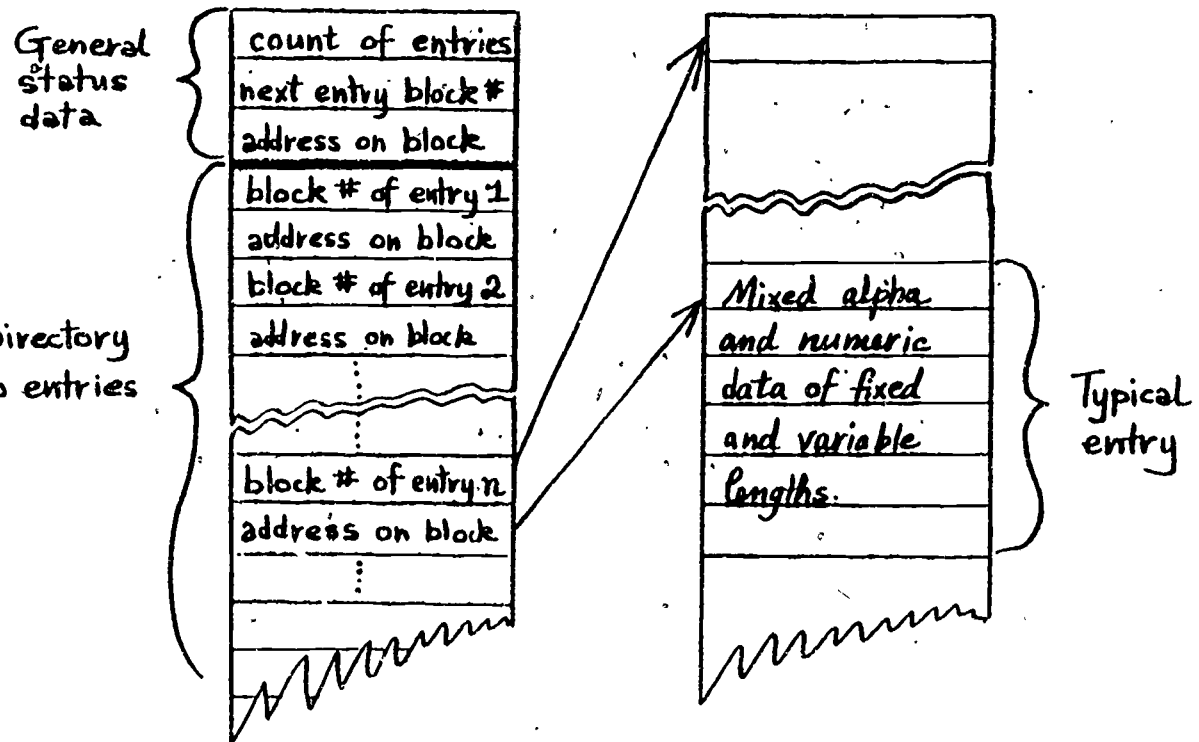 General
status
data
count of entries
next entry block #
address on block
block # of entry 1
address on block
block # of entry 2
address on block
irectory
entries
block # of entry n
address on block
Mixed alpha
and numeric
data of fixed
and variable
lengths.
Typical
entry